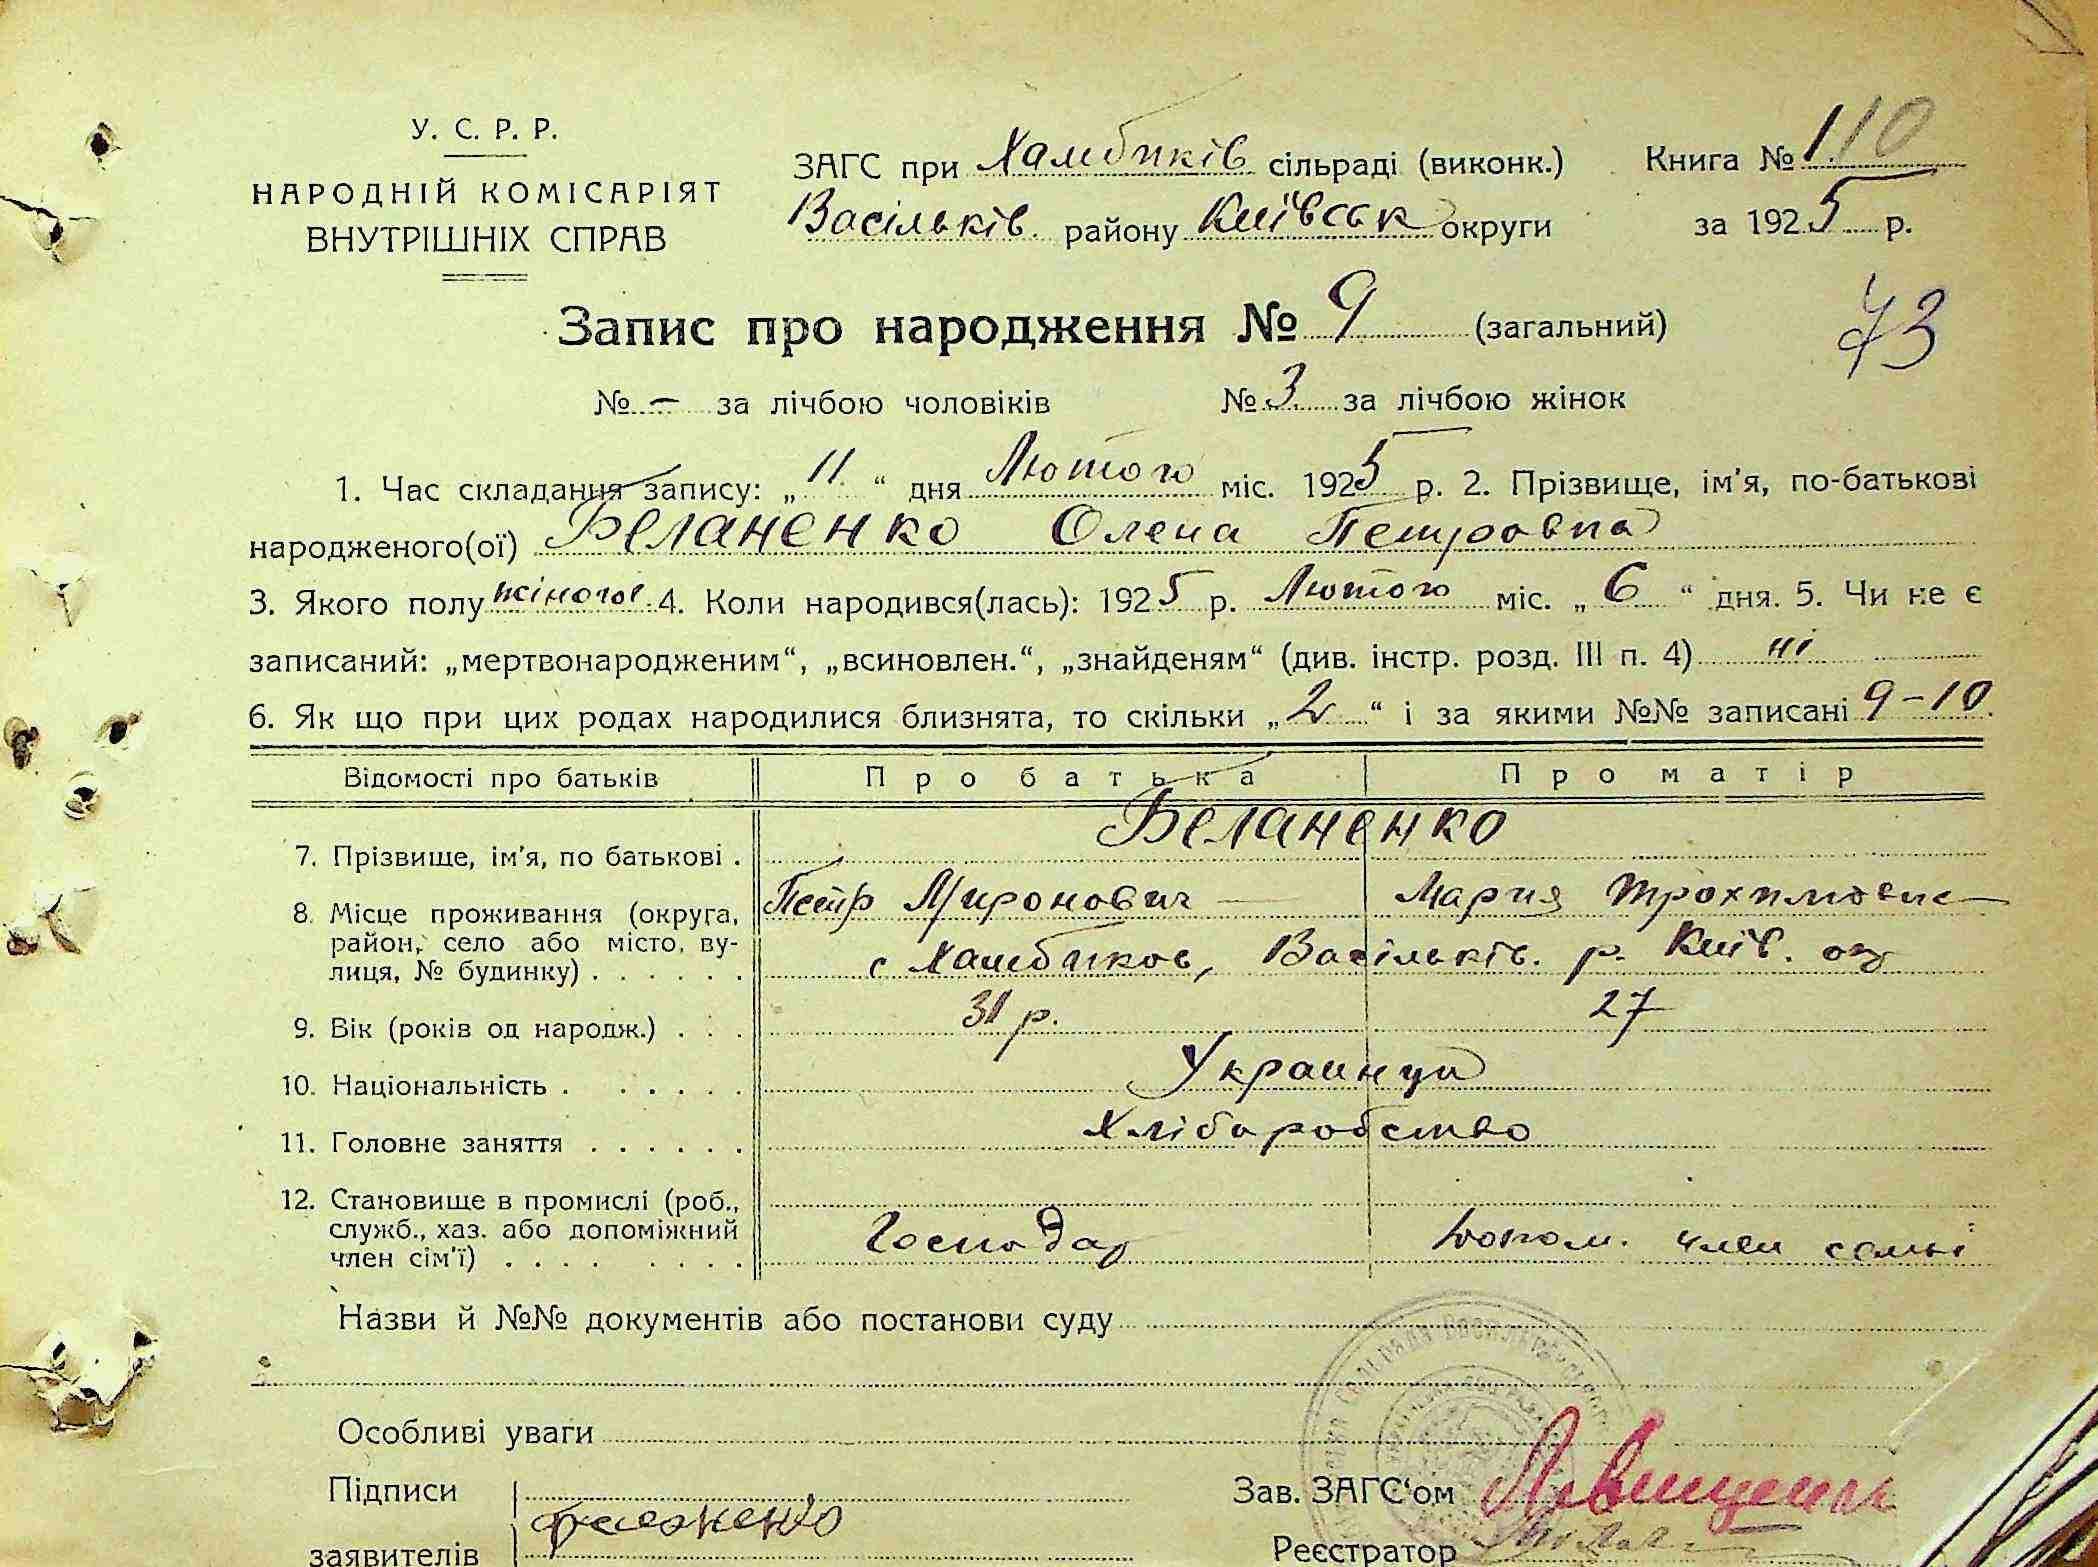 У. С. Р. Р.
НАРОДНІЙ КОМІСАРІЯТ
ВНУТРІШНІХ СПРАВ
ЗАГС при Хамбиків сільраді (виконк.) Книга № 1 10
Васільків району Київськ округи за 1925 р.
Запис про народження № 9 (загальний)
73
№ – за лічбою чоловіків № 3 за лічбою жінок
1. Час складання запису: „11“ дня Лютого міс. 1925 р. 2. Прізвище, ім'я, по-батькові
народженого(ої) Беланенко Олена Петровна
3. Якого полу жіночої 4. Коли народився(лась): 1925 р. Лютого міс. „6“ дня. 5. Чи не є
записаний: „мертвонародженим“, „всиновлен.“, „знайденям“ (див. інстр. розд. III п. 4) ні
6. Як що при цих родах народилися близнята, то скільки „2“ і за якими №№ записані 9-10.
Відомості про батьків Про батька Про матір
7. Прізвище, ім'я, по батькові . Беланенко
Петр Миронович Мария
8. Місце проживання (округа,
район, село або місто, ву-
лиця, № будинку) . . . . . .
с Хамбиков, Васільків. р. Київ. ок
9. Вік (років од народж.) . . . 31 р. 27
10. Національність . . . . . . Украинци
11. Головне заняття . . . . . . Хліборобство
12. Становище в промислі (роб.,
служб., хаз. або допоміжний
член сім'ї) . . . . . . . .
Господар допом. член семьі
Назви й №№ документів або постанови суду
Особливі уваги
Підписи
заявителів
Зав. ЗАГС'ом
Реєстратор